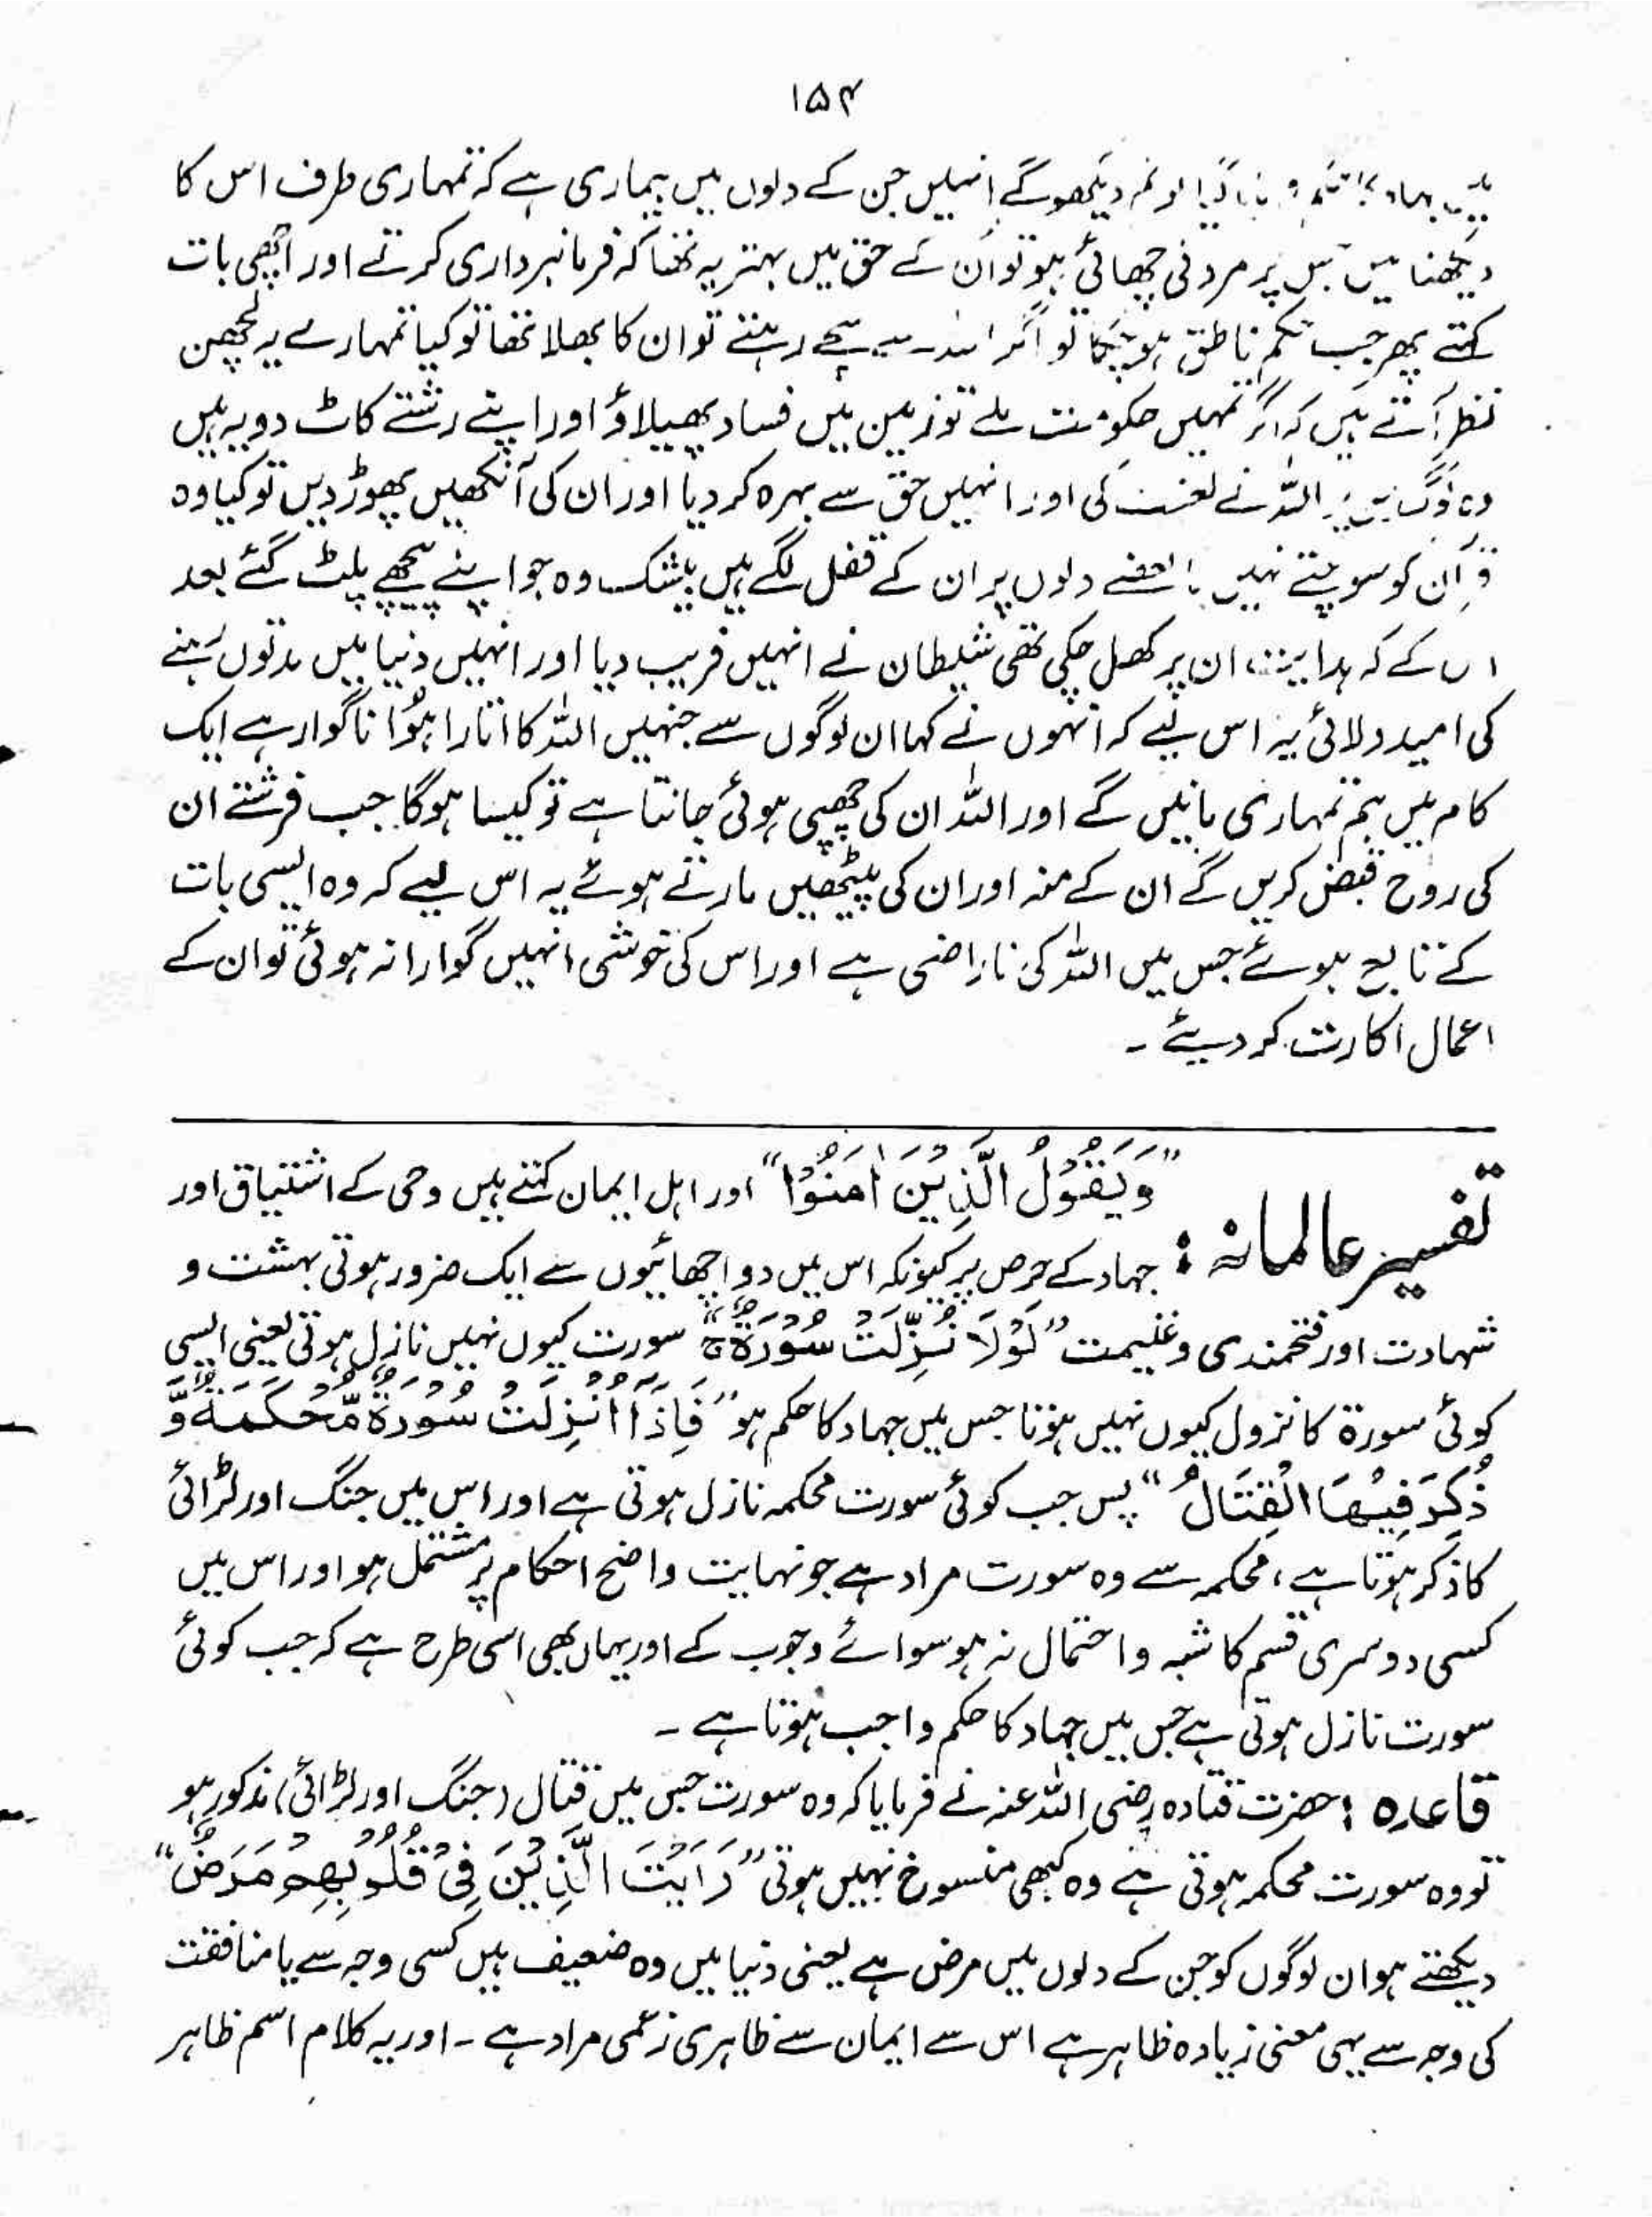 ۱۵۴
میں جہاد کا حکم فرمایا گیا تو تم دیکھو گے انہیں جن کے دلوں میں بیماری ہے کہ تمہاری طرف اس کا
دیکھنا ہیں جس پر مردنی چھائی ہو تو ان کے حق میں بہتر یہ تھا کہ فرمانبرداری کرتے اور اچھی بات
کہتے پھر جب حکم ناطق ہو چکا تو اگر اللہ سے سچے رہتے تو ان کا بھلا تھا تو کیا تمہارے یہ لچھن
نظر آتے ہیں کہ اگر تمہیں حکومت ملے تو زمین میں فساد پھیلاؤ اور اپنے رشتے کاٹ دو یہ ہیں
وہ لوگ جن پر اللہ نے لعنت کی اور انہیں حق سے بہرہ کر دیا اور ان کی آنکھیں پھوڑ دیں تو کیا وہ
قرآن کو سوچتے نہیں یا بعضے دلوں پر ان کے قفل لگے ہیں بیشک وہ جو اپنے پیچھے پلٹ گئے بعد
اس کے کہ ہدایت ان پر کھل چکی تھی شیطان نے انہیں فریب دیا اور انہیں دنیا میں مدتوں رہنے
کی امید دلائی یہ اس لیے کہ انہوں نے کہا ان لوگوں سے جنہیں اللہ کا اتارا ہؤا ناگوار ہے ایک
کام میں ہم تمہاری مانیں گے اور اللہ ان کی چھپی ہوئی جانتا ہے تو کیسا ہوگا جب فرشتے ان
کی روح قبض کریں گے ان کے منہ اور ان کی پیٹھیں مارتے ہوئے یہ اس لیے کہ وہ ایسی بات
کے تابع ہوئے جس میں اللہ کی ناراضی ہے اور اس کی خوشی انہیں گوارا نہ ہوئی تو ان کے
اعمال اکارت کر دیئے ۔
تفسیر عالمانہ : "وَيَقُوْلُ الَّذِيْنَ اٰمَنُوْا" اور اہل ایمان کہتے ہیں وحی کے اشتیاق اور
جہاد کے حرص پر کیونکہ اس میں دو اچھائیوں سے ایک ضرور ہوتی بہشت و
شہادت اور فتحمندی و غنیمت "لَوْلَا نُزِّلَتْ سُوْرَةٌ ۚ" سورت کیوں نہیں نازل ہوتی یعنی ایسی
کوئی سورۃ کا نزول کیوں نہیں ہوتا جس میں جہاد کا حکم ہو "فَاِذَآ اُنْزِلَتْ سُوْرَةٌ مُّحْكَمَةٌ وَّ
ذُكِرَ فِيْهَا الْقِتَالُ" پس جب کوئی سورت محکمہ نازل ہوتی ہے اور اس میں جنگ اور لڑائی
کا ذکر ہوتا ہے، محکمہ سے وہ سورت مراد ہے جو نہایت واضح احکام پر مشتمل ہو اور اس میں
کسی دوسری قسم کا شبہ و احتمال نہ ہو سوائے وجوب کے اور یہاں بھی اسی طرح ہے کہ جب کوئی
سورت نازل ہوتی ہے جس میں جہاد کا حکم واجب ہوتا ہے ۔
قاعدہ : حضرت قتادہ رضی اللہ عنہ نے فرمایا کہ وہ سورت جس میں قتال (جنگ اور لڑائی) مذکور ہو
تو وہ سورت محکمہ ہوتی ہے وہ کبھی منسوخ نہیں ہوتی "رَاَيْتَ الَّذِيْنَ فِىْ قُلُوْبِهِمْ مَرَضٌ"
دیکھتے ہو ان لوگوں کو جن کے دلوں میں مرض ہے یعنی دنیا میں وہ ضعیف ہیں کسی وجہ سے یا منافقت
کی وجہ سے یہی معنی زیادہ ظاہر ہے اس سے ایمان سے ظاہری زعمی مراد ہے ۔ اور یہ کلام اسم ظاہر